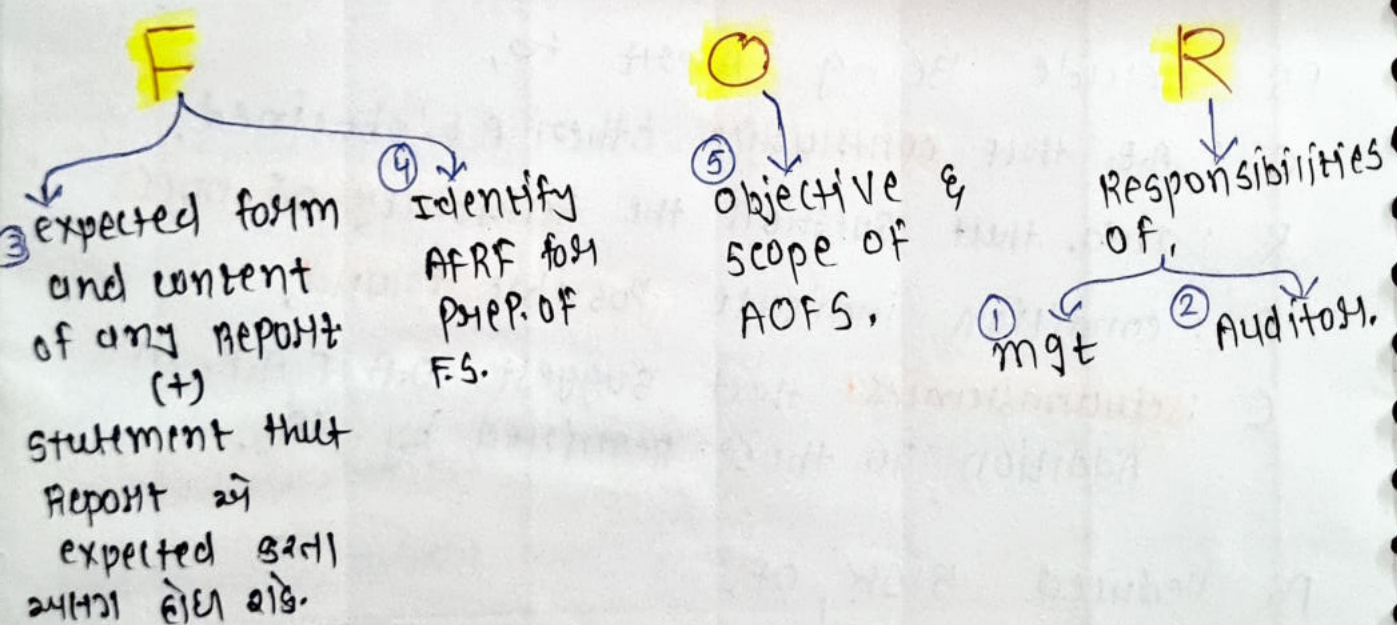 F
③ expected form
and content
of any Report
(+)
statement that
Report એ
expected કરતા
અલગ હોઇ શકે.
④ Identify
AFRF for
prep. of
F.S.
O
⑤ Objective &
scope of
AOFS.
R
Responsibilities
of,
① mgt
② Auditor.